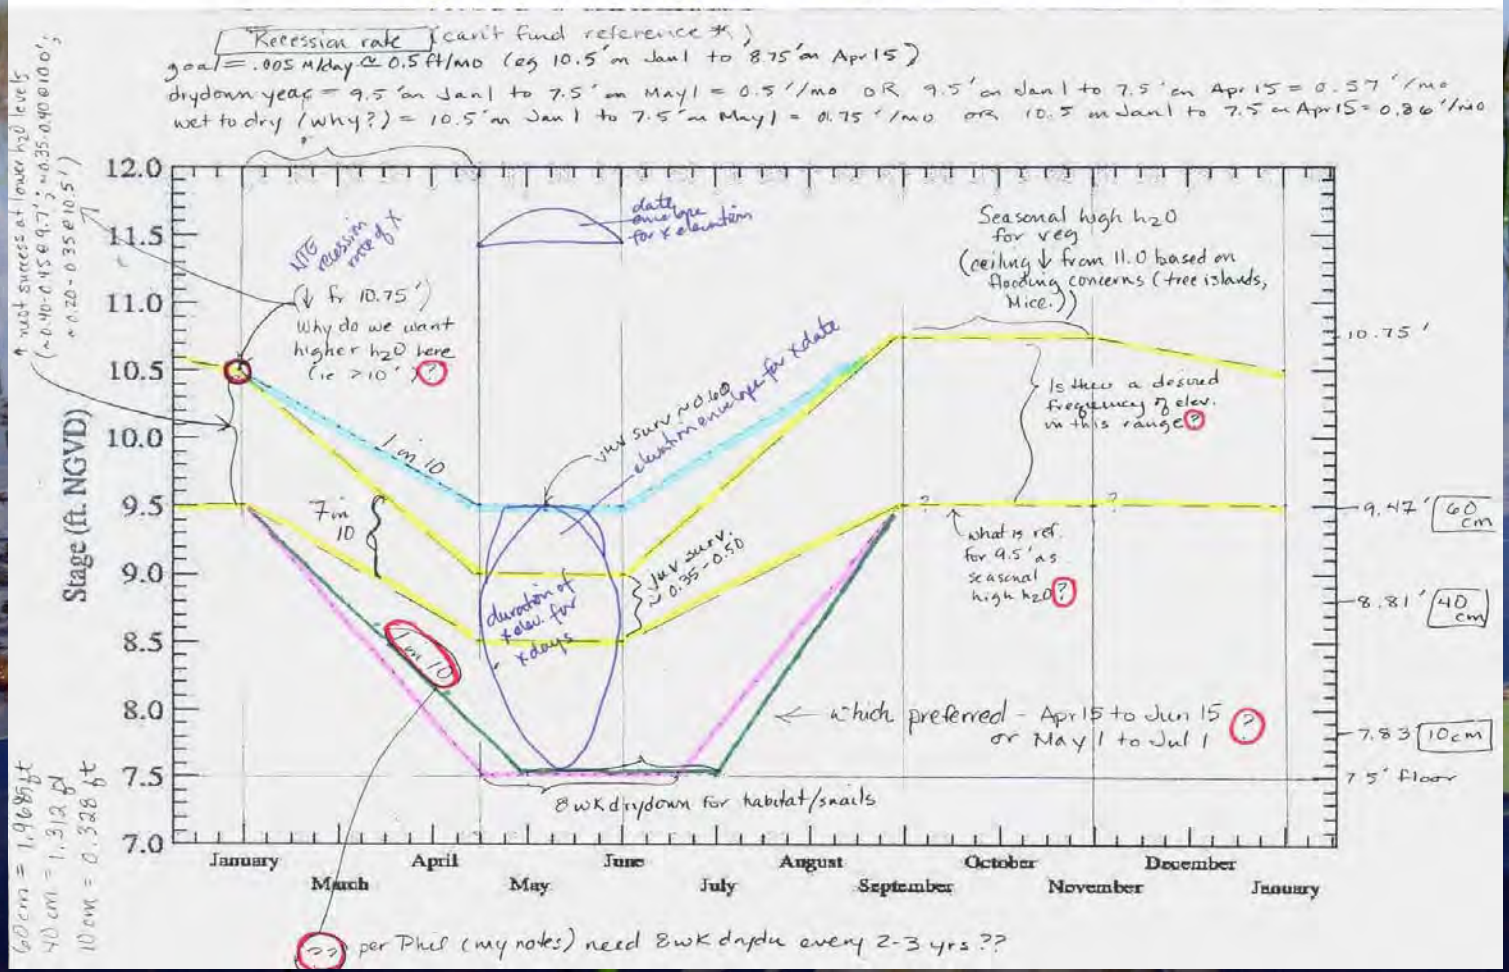 Recession rate (can't fund reference *)
goal = .005 M/day ≅ 0.5 ft/mo (eg 10.5' on Jan 1 to 8.75' on Apr 15)
drydown year = 9.5' on Jan 1 to 7.5' on May 1 = 0.5'/mo OR 9.5' on Jan 1 to 7.5' on Apr 15 = 0.57'/mo
wet to dry (why?) = 10.5' on Jan 1 to 7.5' on May 1 = 0.75'/mo OR 10.5 on Jan 1 to 7.5 on Apr 15 = 0.86'/mo
↑ nest success at lower h2o levels
(~0.40-0.45 @ 9.7'; ~0.35-0.40 @ 10.0';
~0.20-0.35 @ 10.5')
Stage (ft. NGVD)
12.0
11.5
11.0
10.5
10.0
9.5
9.0
8.5
8.0
7.5
7.0
NTE
recession
rate of X
(↓ fr 10.75')
Why do we want
higher h2o here
(ie >10')?
date
envelope
for x elevation
Seasonal high h2o
for veg
(ceiling ↓ from 11.0 based on
flooding concerns (tree islands,
Mice.))
10.75'
1 in 10
juv surv ~0.60
elevation envelope for x date
Is there a desired
frequency of elev.
in this range?
7 in
10
?
?
9.47' 60 cm
what is ref.
for 9.5' as
seasonal
high h2o?
juv surv.
~0.35-0.50
duration of
x elev. for
x days
8.81' 40 cm
1 in 10
which preferred - Apr 15 to Jun 15 ?
or May 1 to Jul 1
7.83 10cm
7.5' floor
8 wk drydown for habitat/snails
January
March
April
May
June
July
August
September
October
November
December
January
60 cm = 1.968 ft
40 cm = 1.312 ft
10 cm = 0.328 ft
?? per Phil (my notes) need 8 wk drydn every 2-3 yrs ??